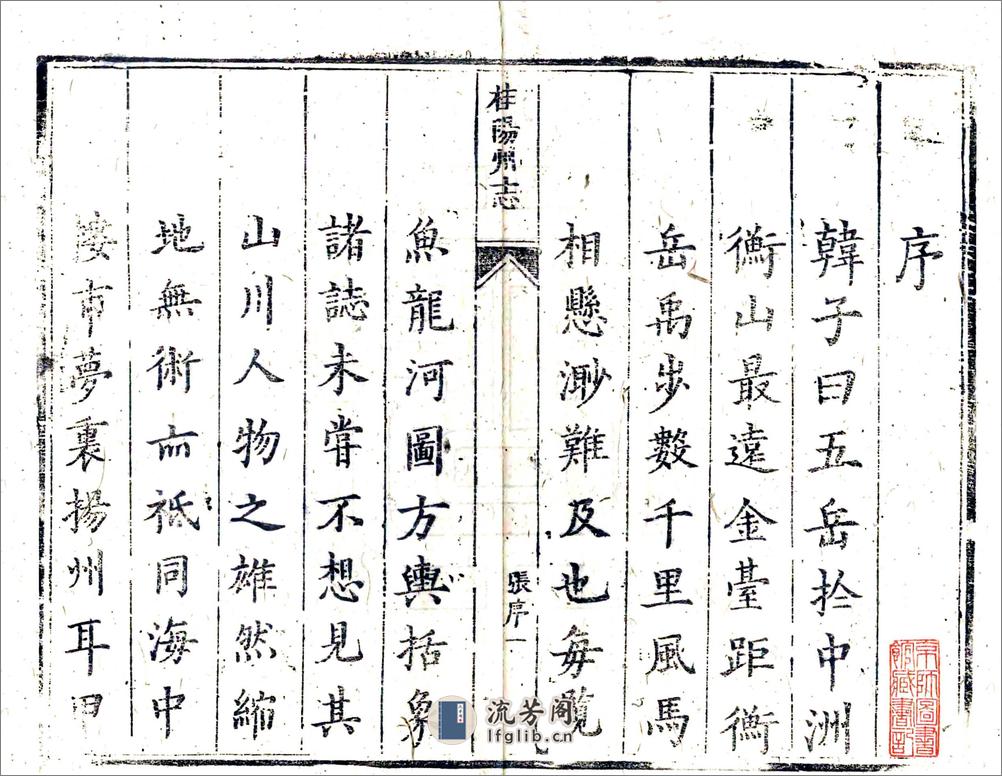 序
韓子曰五岳扵中洲
衡山最遠金臺距衡
岳禹步數千里風馬
相懸渺難及也每覽
桂陽州志
張序一
魚龍河圖方輿括象
諸誌未嘗不想見其
山川人物之雄然縮
地無術而祗同海中
蜃市夢裏揚州耳甲
流芳阁
lfglib.cn